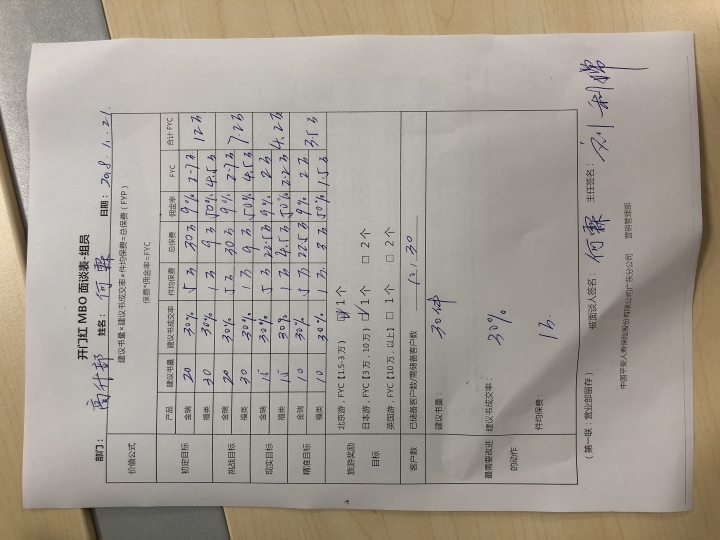 开门红 MBO 面谈表-组员
部门： 高升部 姓名： 何霖 日期： 2018.1.21.
价值公式 建议书量×建议书成交率×件均保费=总保费（FYP）
保费*佣金率=FYC
产品 建议书量 建议书成交率 件均保费 总保费 佣金率 FYC 合计 FYC
初定目标 金瑞 20 30% 5万 30万 9% 2.7万 12万
福类 30 30% 1万 9万 50% 4.5万
挑战目标 金瑞 20 30% 5万 30万 9% 2.7万 7.2万
福类 30 30% 1万 9万 50% 4.5万
现实目标 金瑞 15 30% 5万 22.5万 9% 2万 4.2万
福类 15 30% 1万 4.5万 50% 2.2万
精准目标 金瑞 10 30% 5万 22.5万 9% 2万 3.5万
福类 10 30% 1万 3万 50% 1.5万
旅游奖励
目标
北京游，FYC【1.5-3 万） ☑ 1 个
日本游，FYC【3 万，10 万） ☑ 1 个 □ 2 个
英国游，FYC【10 万，以上】 □ 1 个 □ 2 个
客户数 已储备客户数/需储备客户数 12，30
最需要改进
的动作
建议书量： 30件
建议书成交率： 30%
件均保费： 1万.
（第一联：营业部留存） 被面谈人签名： 何霖 主任签名： 刘利婵
中国平安人寿保险股份有限公司广东分公司 营销管理部